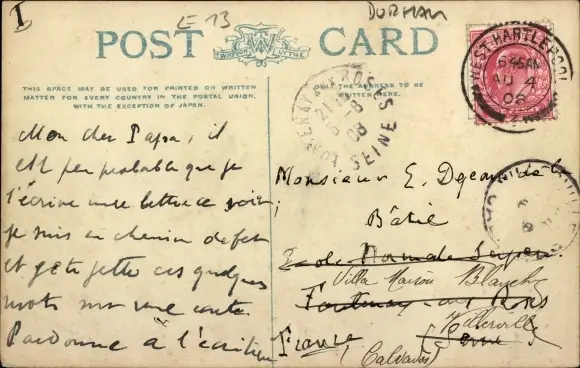 I
E 13
DURHAM
POST CARD
THIS SPACE MAY BE USED FOR PRINTED OR WRITTEN
MATTER FOR EVERY COUNTRY IN THE POSTAL UNION,
WITH THE EXCEPTION OF JAPAN.
THE ADDRESS TO BE
WRITTEN HERE.
WEST HARTLEPOOL
645AM
AU 4
08
FONTENAY AUX ROSES
21
5-8
08
SEINE
Mon cher Papa, il
est peu probable que je
t'écrive une lettre ce soir;
je suis en chemin de fer
et je te jette ces quelques
mots sur une carte.
Pardonne à l'écriture
Monsieur E.
Bâtié
Ecole Normale Super.
Villa Maison Blanche
Fontenay aux Roses
Villerville
Seine
France
(Calvados)